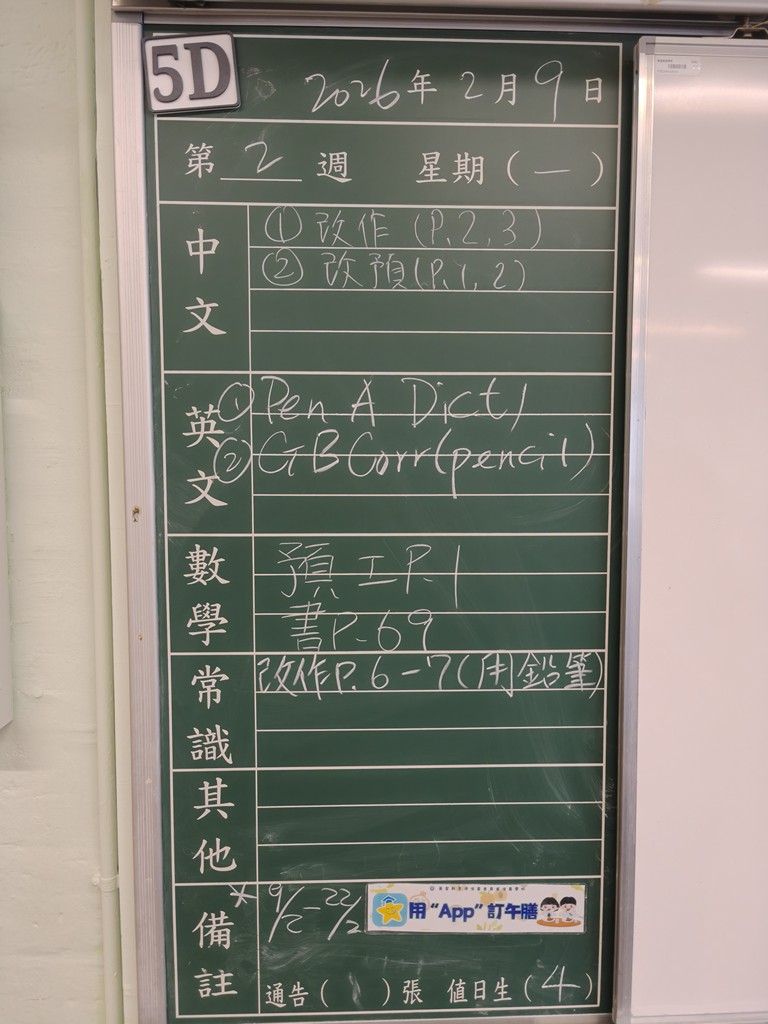 5D
2026年2月9日
第 2 週 星期(一)
中文
① 改作 (P.2,3)
② 改預(P.1,2)
英文
① Pen A Dict1
② GB Corr(pencil)
數學
預工P.1
書P.69
常識
改作P.6-7(用鉛筆)
其他
備註
* 9/2-22/2
用“App”訂午膳
通告( )張 值日生(4)